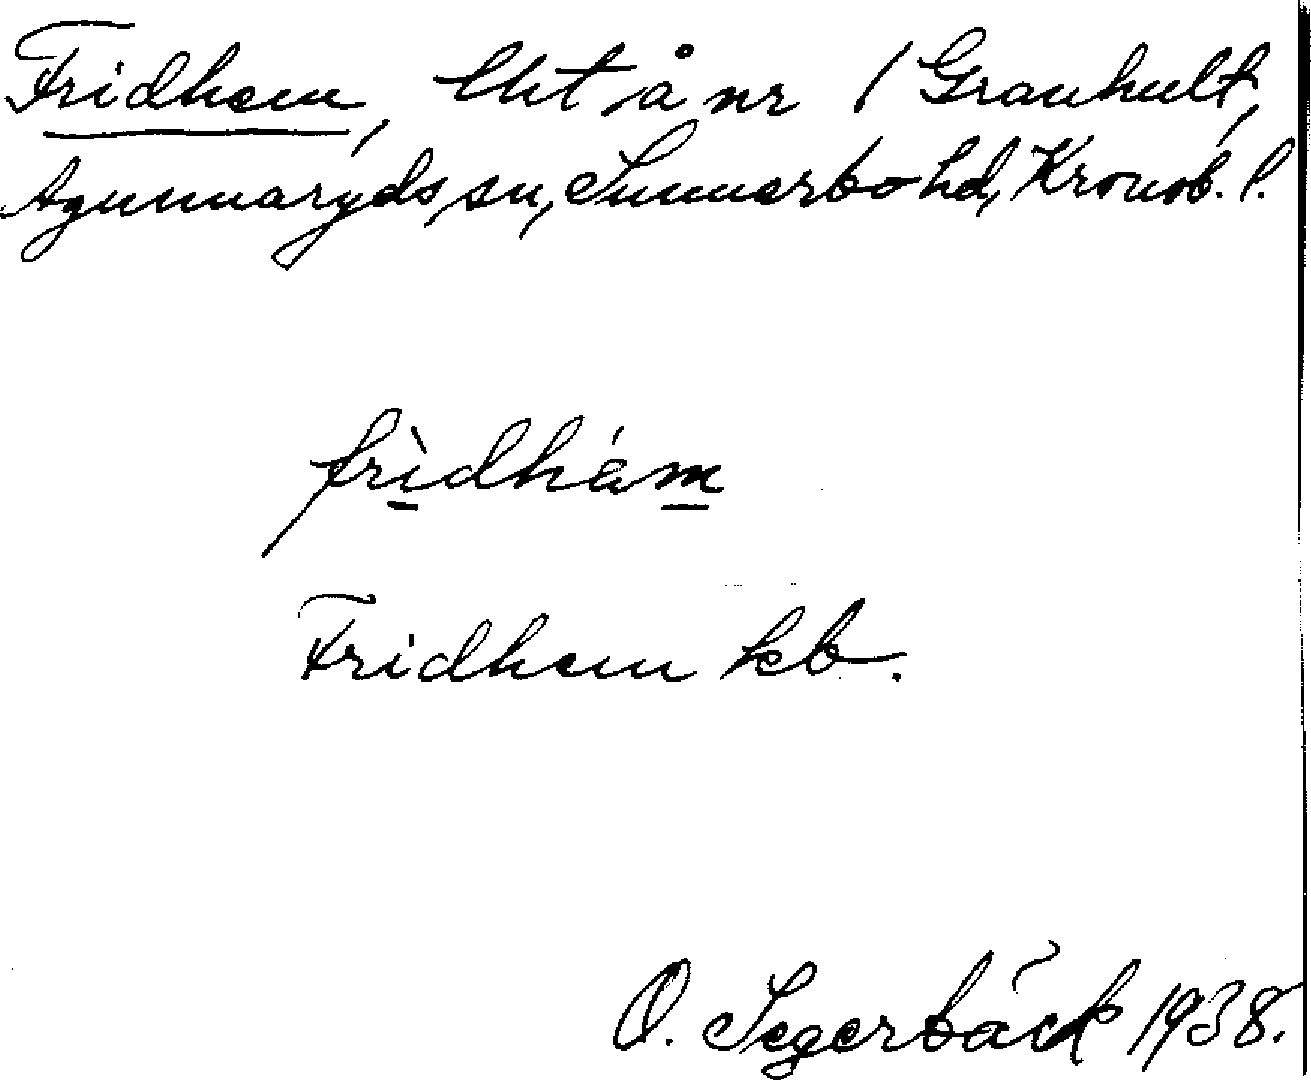 Fridhem, lht å nr 1 Granhult,
Agunnaryds sn, Sunnerbo hd, Kronob. l.
frìdhém
Fridhem kb.
O. Segerbäck 1938.